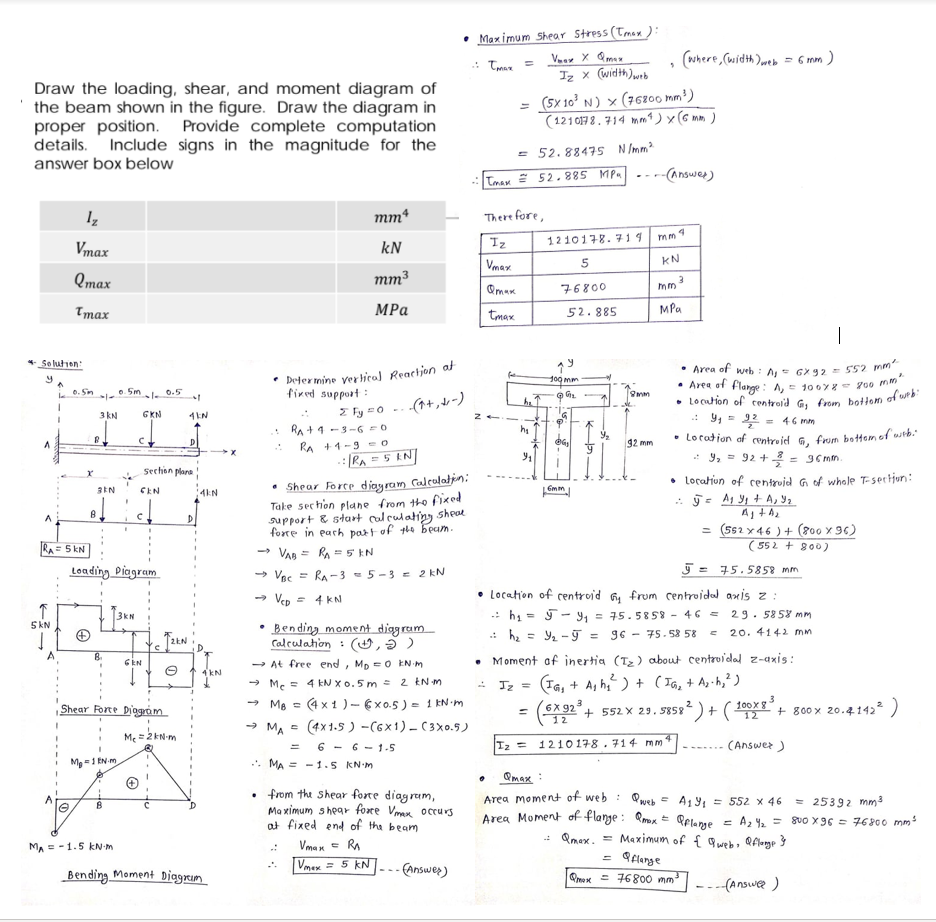 Draw the loading, shear, and moment diagram of
the beam shown in the figure. Draw the diagram in
proper position. Provide complete computation
details. Include signs in the magnitude for the
answer box below
I_z mm⁴
V_max kN
Q_max mm³
τ_max MPa
• Maximum Shear Stress (τmax):
∴ τmax = Vmax × Qmax / Iz × (width)web , (where, (width)web = 6 mm)
= (5×10³ N) × (76800 mm³) / (1210178.714 mm⁴) × (6 mm)
= 52.88475 N/mm²
∴ τmax ≅ 52.885 MPa ----(Answer)
Therefore,
Iz 1210178.714 mm⁴
Vmax 5 KN
Qmax 76800 mm³
τmax 52.885 MPa
* Solution:
y
0.5m 0.5m 0.5
3KN 6KN 4KN
A B C D x
x Section plane
3KN 6KN 4KN
A B C D
RA = 5 KN
Loading Diagram
5 KN 3KN
⊕ 2KN
A B C D
6KN ⊖ 4KN
Shear Force Diagram
Mc = 2 kN·m
MB = 1 kN·m
⊕
A ⊖ B C D
MA = -1.5 KN·m
Bending Moment Diagram
• Determine vertical Reaction at
fixed support :
∴ Σ Fy = 0 ---(↑+, ↓-)
∴ RA + 4 - 3 - 6 = 0
∴ RA + 4 - 9 = 0
∴ RA = 5 KN
• Shear Force diagram Calculation:
Take section plane from the fixed
support & start calculating shear
force in each part of the beam.
→ VAB = RA = 5 KN
→ VBC = RA - 3 = 5 - 3 = 2 KN
→ VCD = 4 KN
• Bending moment diagram
Calculation :
→ At free end, MD = 0 KN·m
→ Mc = 4 KN × 0.5 m = 2 KN·m
→ MB = (4×1) - (6×0.5) = 1 KN·m
→ MA = (4×1.5) - (6×1) - (3×0.5)
= 6 - 6 - 1.5
∴ MA = -1.5 KN·m
• from the shear force diagram,
Maximum shear force Vmax occurs
at fixed end of the beam
∴ Vmax = RA
∴ Vmax = 5 KN ---(Answer)
y
100 mm
h2 G2 8mm
z G
h1 G1 y2 92 mm
y1 ȳ
6mm
• Area of web : A1 = 6×92 = 552 mm²
• Area of Flange : A2 = 100×8 = 800 mm²
• Location of centroid G1 from bottom of web:
∴ y1 = 92/2 = 46 mm
• Location of centroid G2 from bottom of web:
∴ y2 = 92 + 8/2 = 96 mm.
• Location of centroid G of whole T-section:
∴ ȳ = A1 y1 + A2 y2 / A1 + A2
= (552 × 46) + (800 × 96) / (552 + 800)
ȳ = 75.5858 mm
• Location of centroid G from centroidal axis z :
∴ h1 = ȳ - y1 = 75.5858 - 46 = 29.5858 mm
∴ h2 = y2 - ȳ = 96 - 75.5858 = 20.4142 mm
• Moment of inertia (Iz) about centroidal z-axis:
∴ Iz = (IG1 + A1 h1²) + (IG2 + A2·h2²)
= (6×92³/12 + 552 × 29.5858²) + (100×8³/12 + 800 × 20.4142²)
Iz = 1210178.714 mm⁴ ------ (Answer)
• Qmax :
Area Moment of web : Qweb = A1 y1 = 552 × 46 = 25392 mm³
Area Moment of flange: Qmax = Qflange = A2 y2 = 800 × 96 = 76800 mm³
∴ Qmax. = Maximum of { Qweb, Qflange }
= Qflange
Qmax = 76800 mm³ ----(Answer)